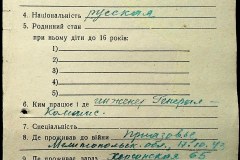 4. Національність русская
5. Родинний стан
при ньому діти до 16 років:
1)
2)
3)
4)
5)
6. Ким працює і де инженер Генераль-
Комис.
7. Спеціальність
8. Де проживав до війни Приазовье,
Мелитопольск. обл.
9. Де проживає зараз Херсонская 65